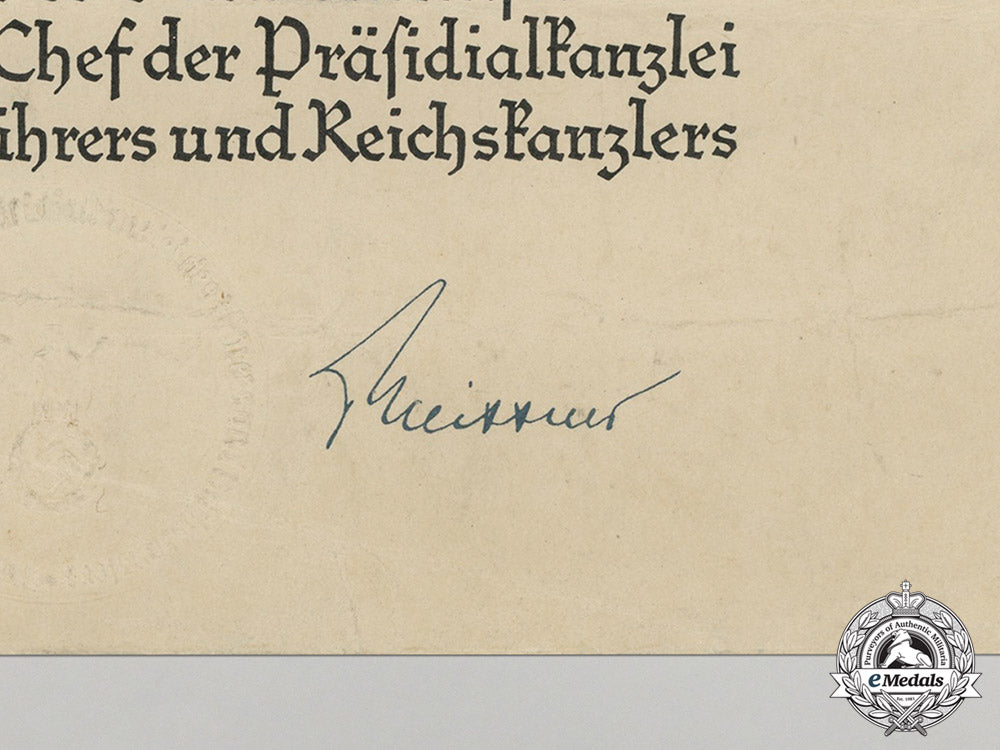 Chef der Präsidialkanzlei
ührers und Reichskanzlers
Meissner
Purveyors of Authentic Militaria
eMedals
Est. 1985